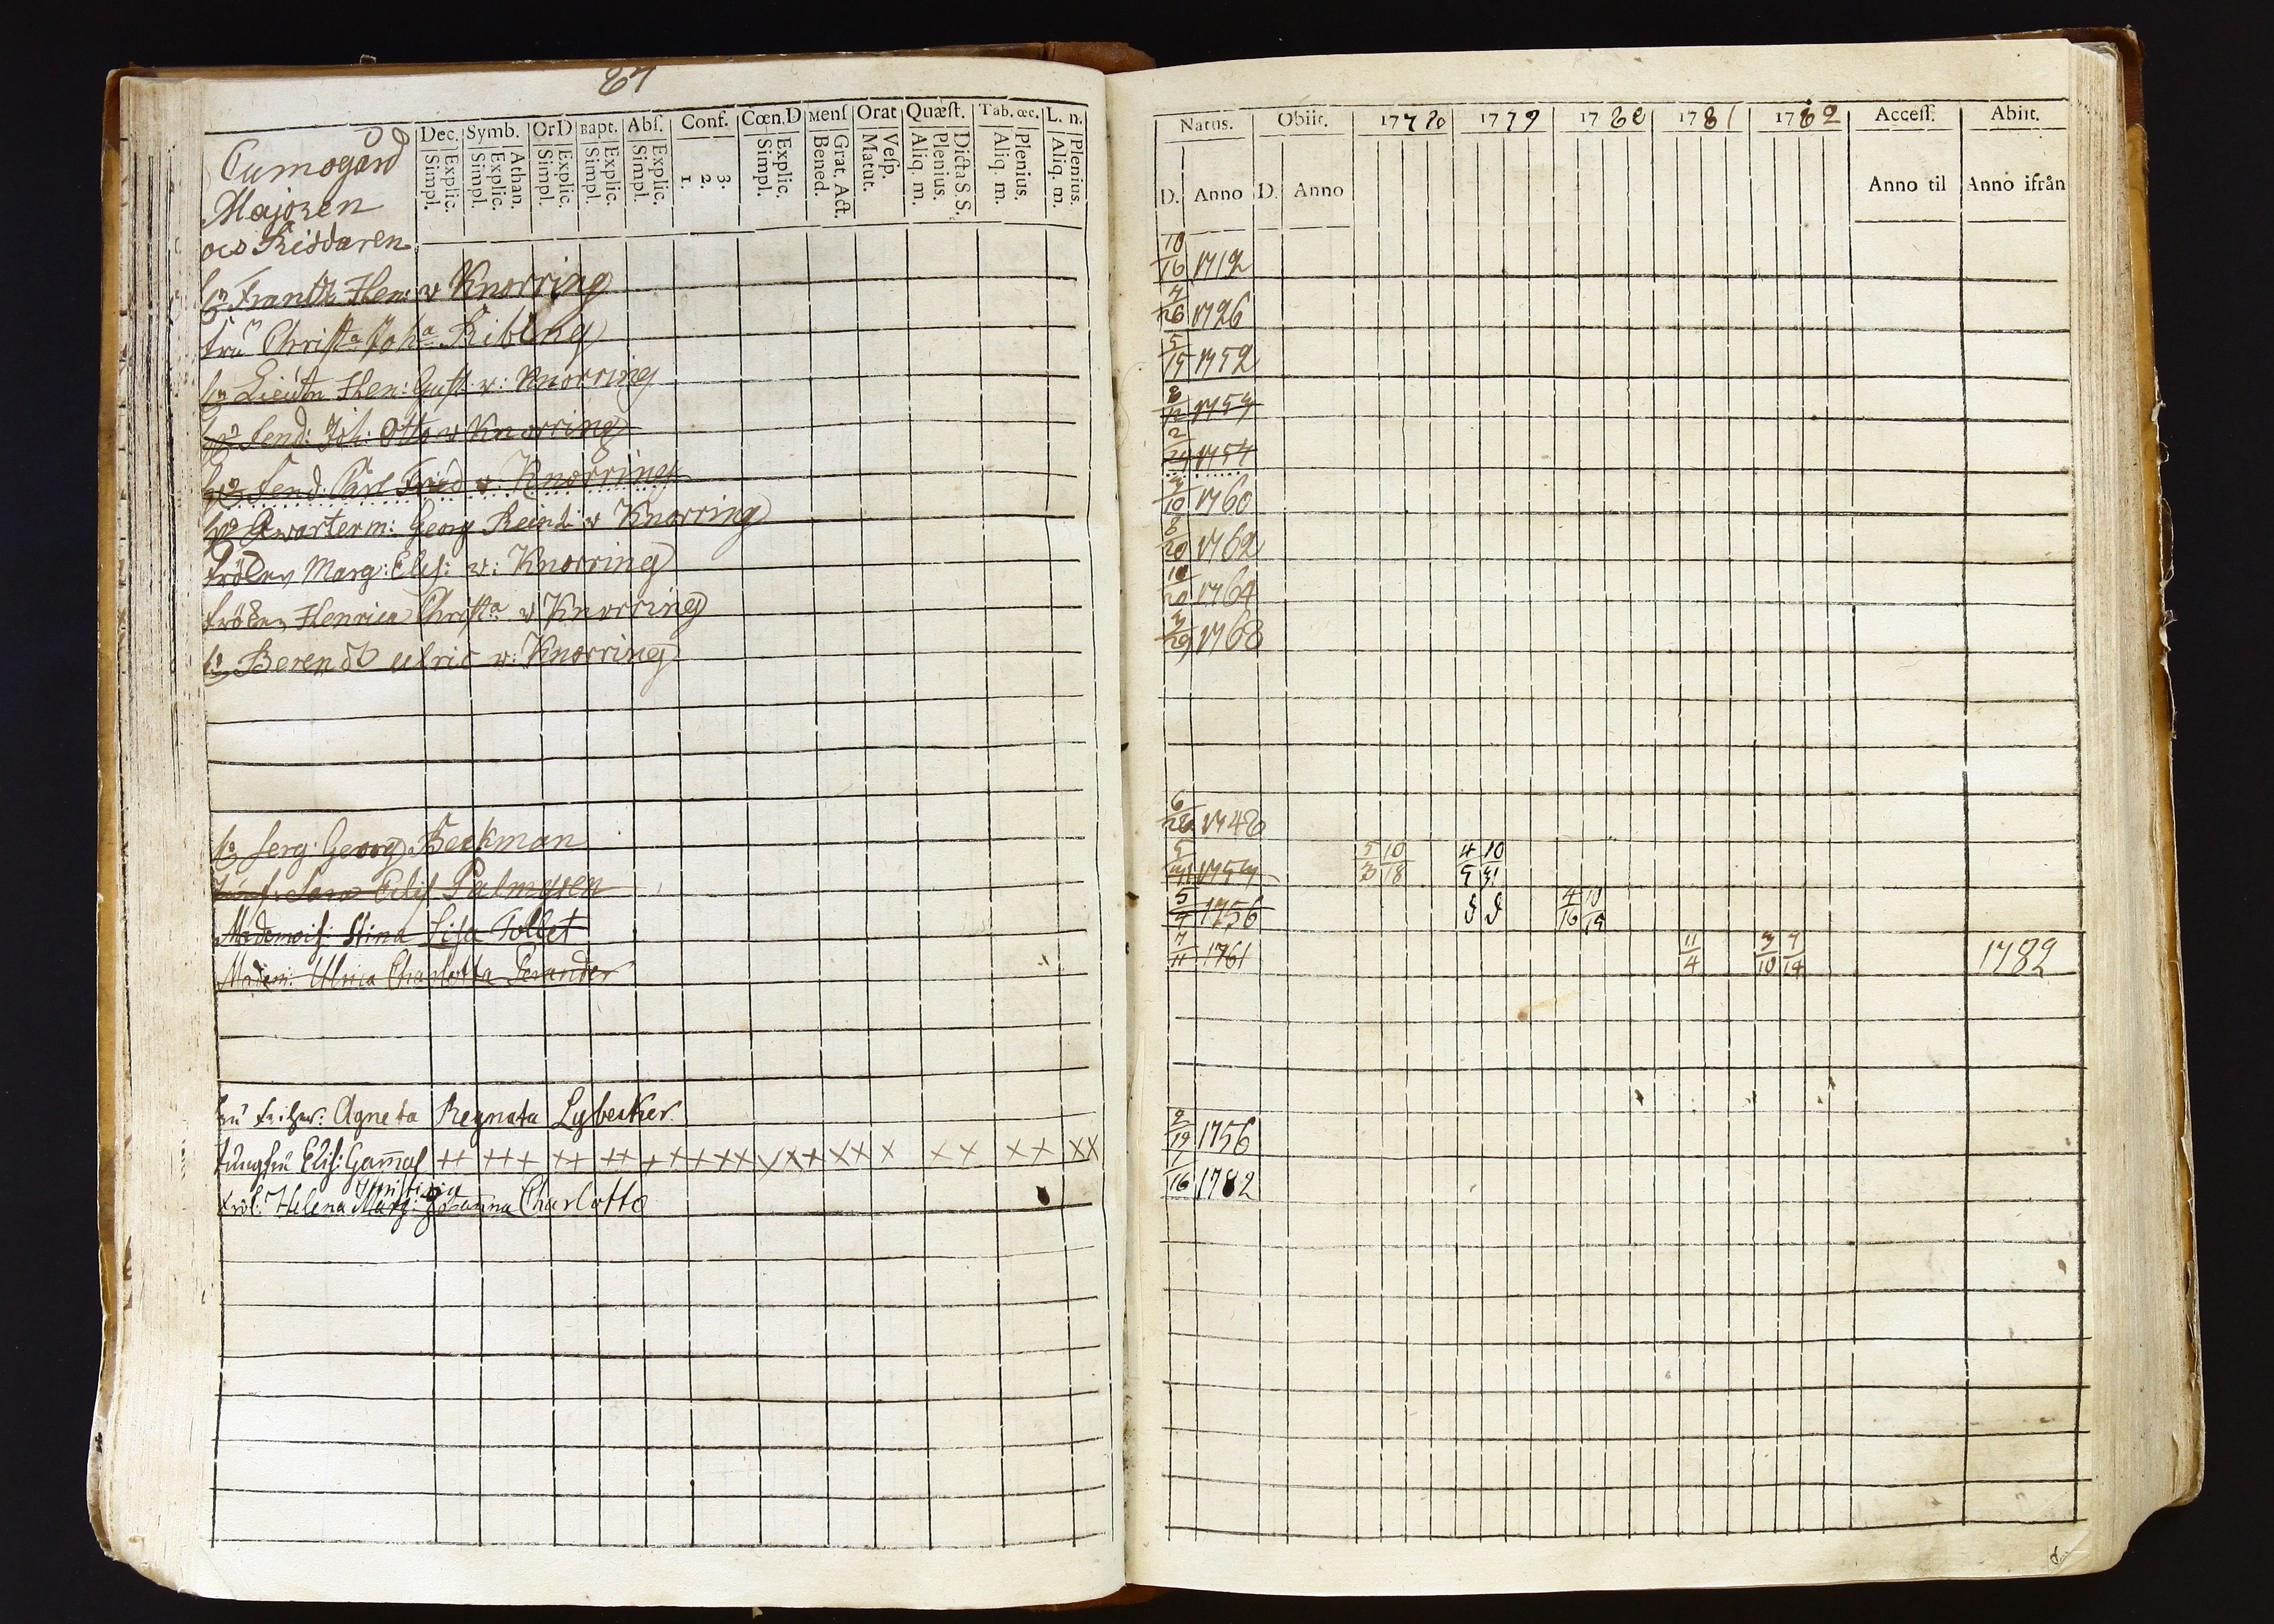 87
Dec. Symb. OrD Bapt. Abſ. Conf. Cœn.D Menſ Orat Quæſt. Tab. œc. L. n.
Simpl. Explic. Simpl. Explic. Athan. Simpl. Explic. Simpl. Explic. Simpl. Explic. 1. 2. 3. Simpl. Explic. Bened. Grat. Act. Matut. Veſp. Aliq. m. Plenius. Dicta S.S. Aliq. m. Plenius. Aliq. m. Plenius.
Majoren
och Riddaren
Hr Frantz Hen: v Knorring
Fru Christa Joha Ribbing
Hr Lieutn Hen: Gust. v: Knorring
Hr Fend: Joh: Otto v Knorring
Hr Fend: Carl Fried v: Knorring
Hr Qwarterm: Georg Reinh: v Knorring
Fröken Marg: Elis: v: Knorring
Fröken Henrica Christa v Knorring
Hr Berendt Ulric v: Knorring
Hr Serg: Georg Beckman
Jungf. Sara Elis Palmgren
Mademois: Stina Lisa Tollet
Madem: Ulrica Charlotta Serander
Fru Friher: Agneta Regnata Lybecker
Jungfru Elis: Gamal ++ +++ ++ ++ + + + + × × × + × × × × × × × × × ×
Fröl. Helena Marg: Johanna Charlotta
Natus. Obiit. 1778 1779 1780 1781 1782 Acceſſ. Abiit.
D. Anno D. Anno Anno til Anno ifrån
10/16 1712
4/26 1726
5/15 1752
8/12 1753
2/24 1754
3/10 1760
8/20 1762
10/20 1764
3/29 1768
6/28 1748
5/31 1753 5/3 10/18 4/5 10/31
5/4 1756 4/16 10/15
7/11 1761 11/4 3/10 9/14 1782
2/19 1756
7/16 1782